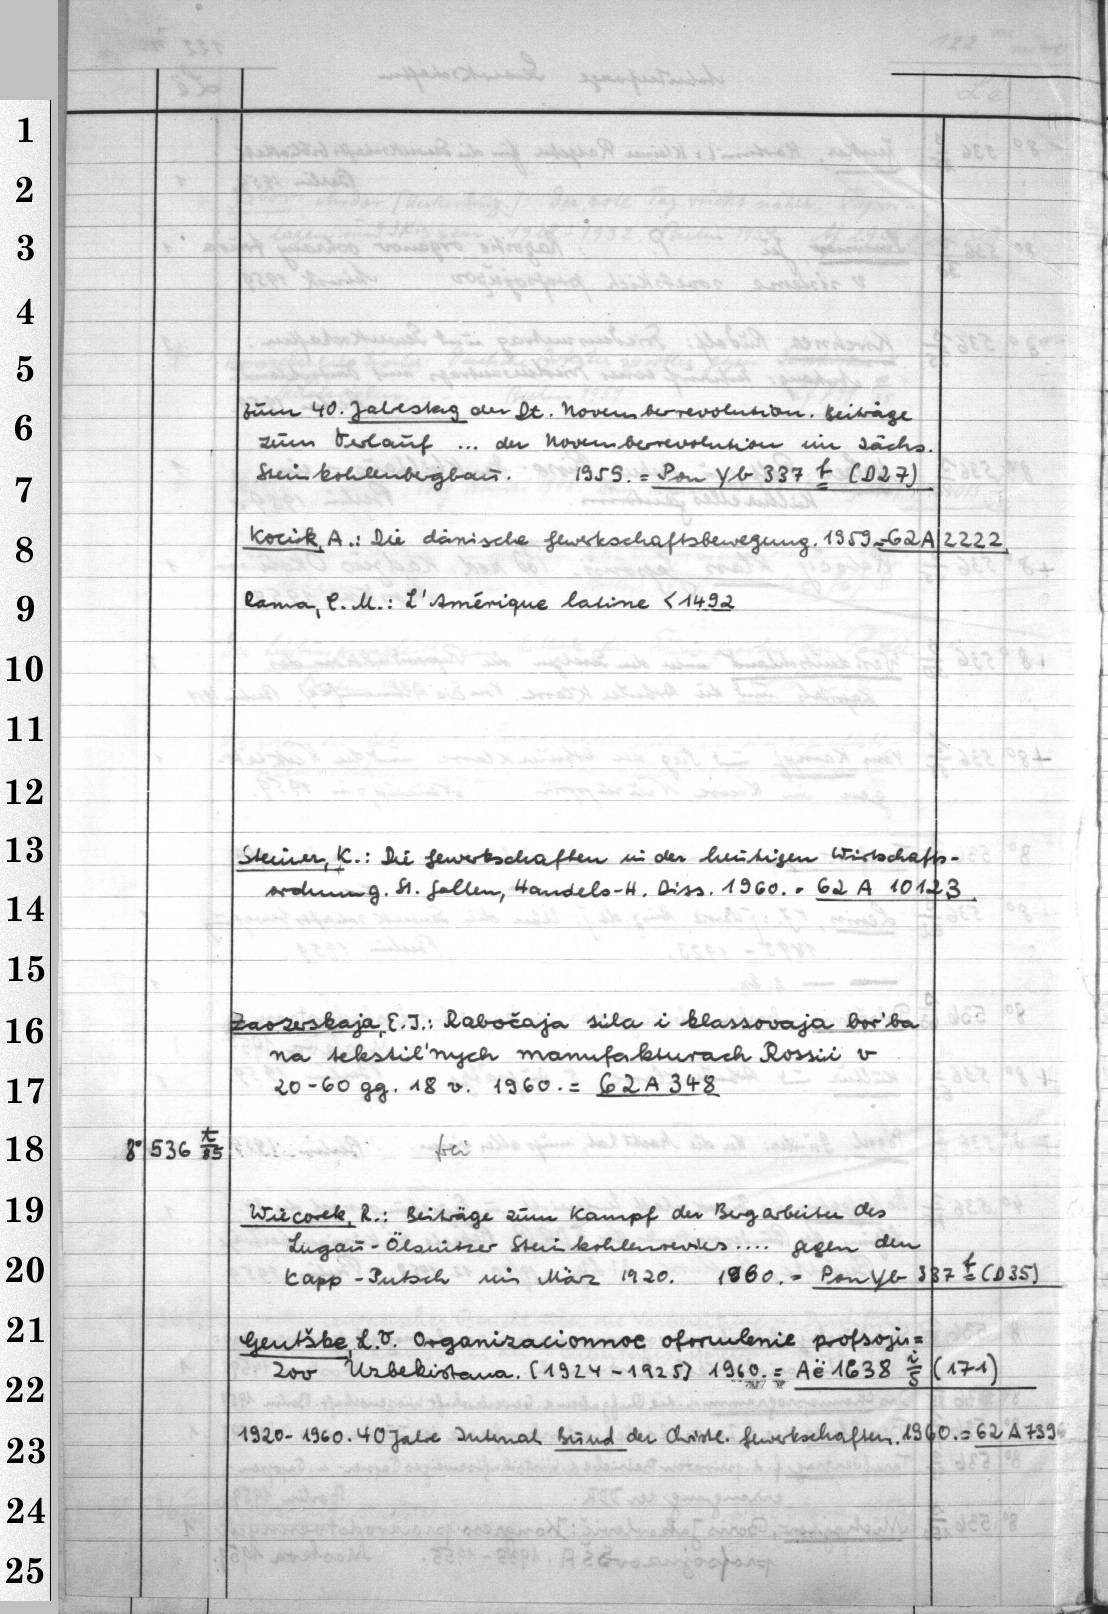 1
2
3
4
5
6
7
8
9
10
11
12
13
14
15
16
17
18
19
20
21
22
23
24
25
Zum 40. Jahrestag der Dt. Novemberrevolution. Beiträge
zum Verlauf ... der Novemberrevolution im Sächs.
Steinkohlenbergbau. 1959. = Pon Yb 337 f (D27)
Kocik, A.: Die dänische Gewerkschaftsbewegung. 1959 = 62 A 2222
Rama, C. M.: L'Amérique latine < 1492
Steiner, K.: Die Gewerkschaften in der heutigen Wirtschafts-
ordnung. St. Gallen, Handels-H. Diss. 1960. = 62 A 10123
Zaozerskaja, E.I.: Rabočaja sila i klassovaja bor'ba
na tekstil'nych manufakturach Rossii v
20-60 gg. 18 v. 1960. = 62 A 348
8° 536 t/85 frei
Wiecorek, R.: Beiträge zum Kampf der Bergarbeiter des
Lugau-Ölsnitzer Steinkohlenrevies .... gegen den
Kapp-Putsch im März 1920. 1960. = Pon Yb 337 f (D35)
Gentške, L.V. Organizacionnoe oformlenie profsoju=
zov Uzbekistana. (1924-1925) 1960. = Aë 1638 i/5 (171)
1920-1960. 40 Jahre Internat. Bund der Christl. Gewerkschaften. 1960. = 62 A 739